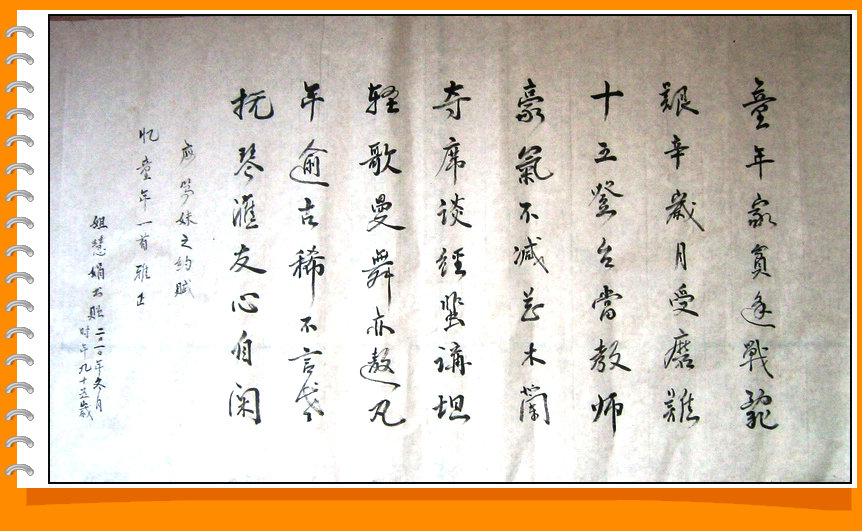 童年家貧逢戰亂
艱辛歲月受磨難
十五登台當教师
豪氣不减花木蘭
夺席谈經蜚講坦
轻歌曼舞亦遨凡
年逾古稀不言老
抚琴滙友心自闲
应笃妹之约赋
忆童年一首雅正
姐慧娟书赠 二〇一〇年冬月
时年九十五歲